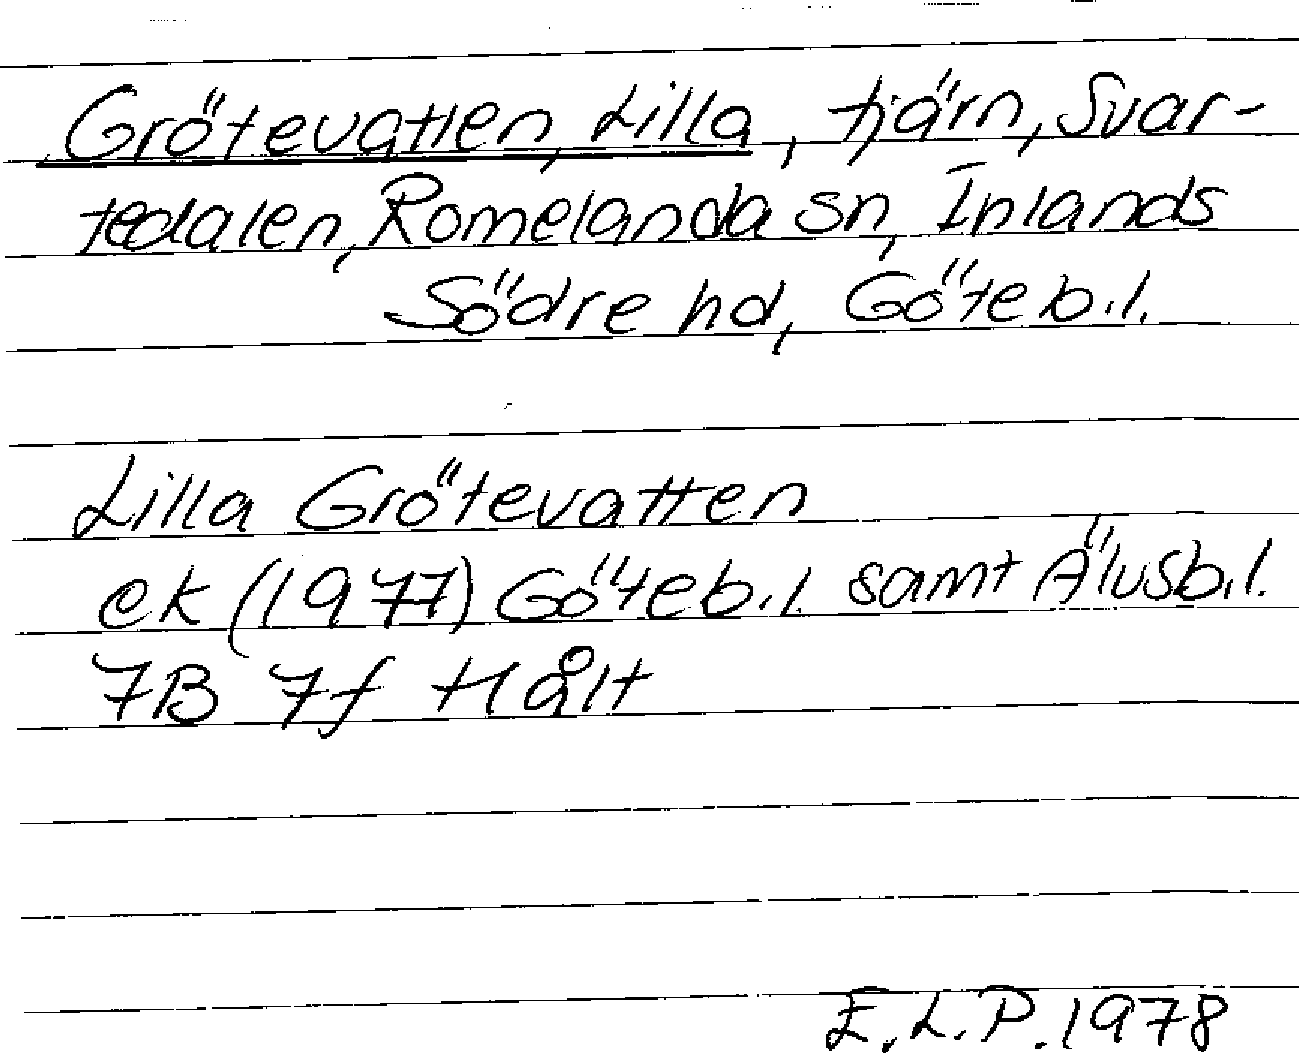 Grötevatten, Lilla, tjärn, Svar-
tedalen, Romelanda sn, Inlands
Södre hd, Göteb.l.
Lilla Grötevatten
ek (1977) Göteb.l. samt Älvsb.l.
7B 7f Hålt
E.L.P. 1978